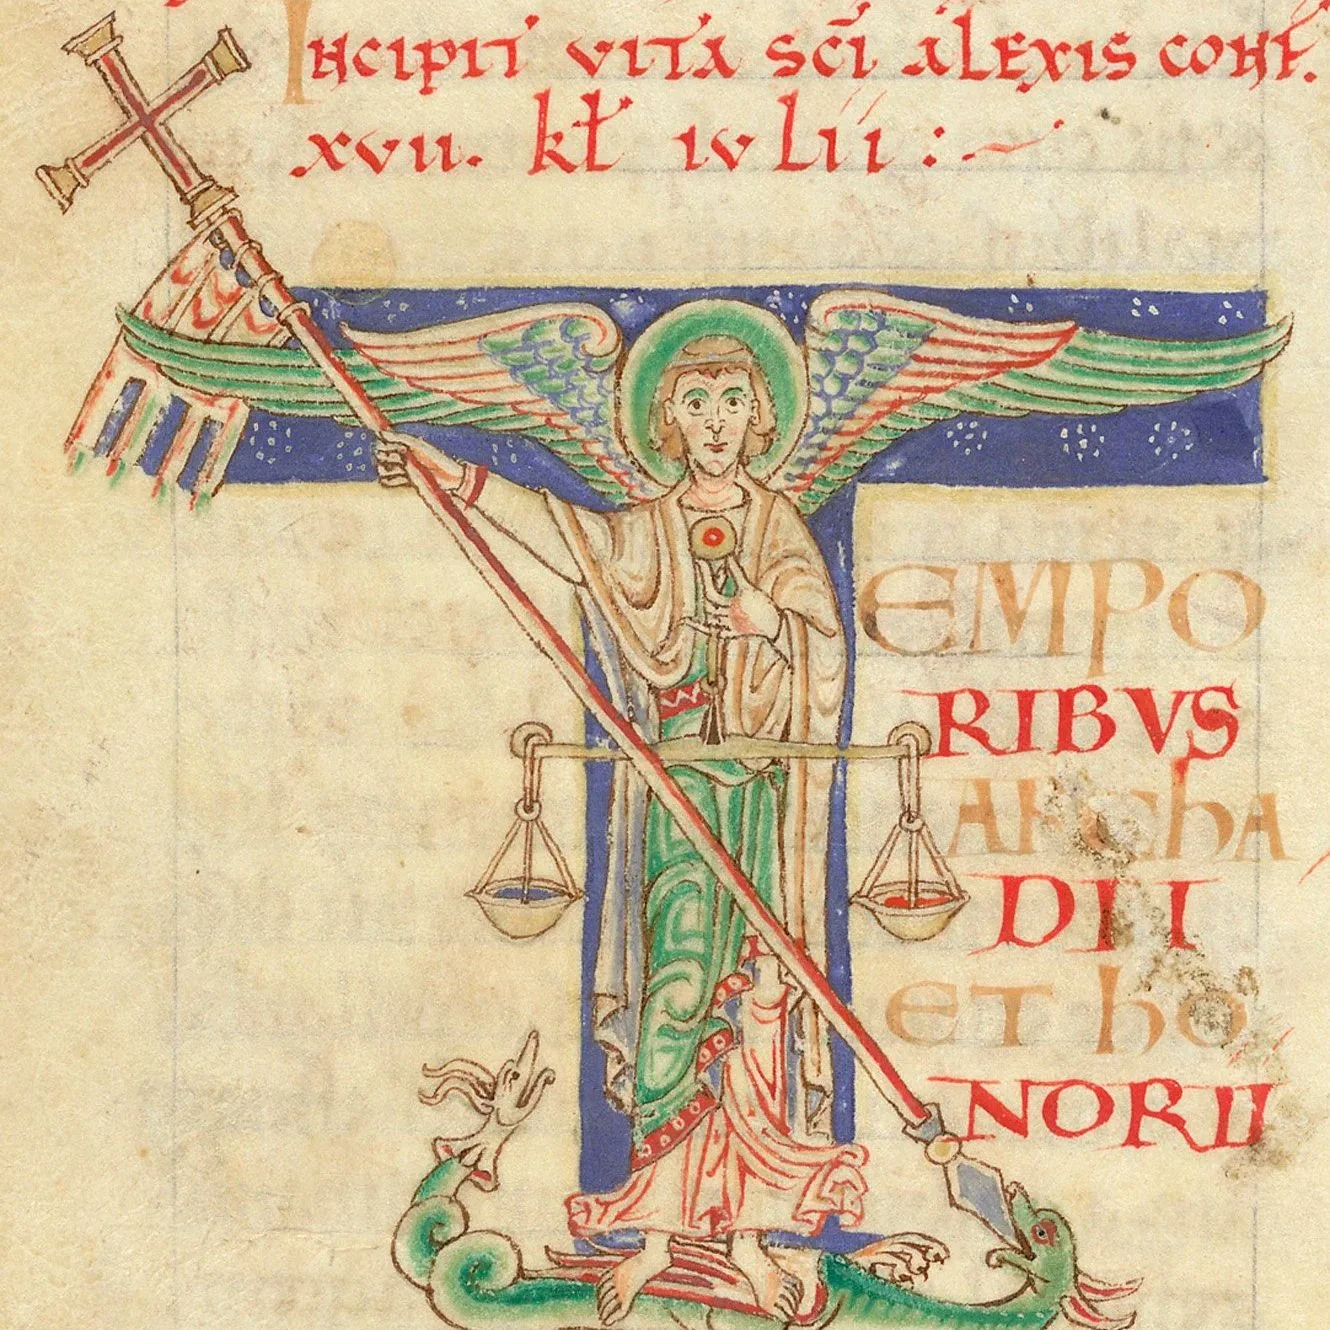 Incipit vita sc̄i alexis conf.
xvii. kł iulii :
T
EMPO
RIBVS
ARchA
DII
ET hO
NORII